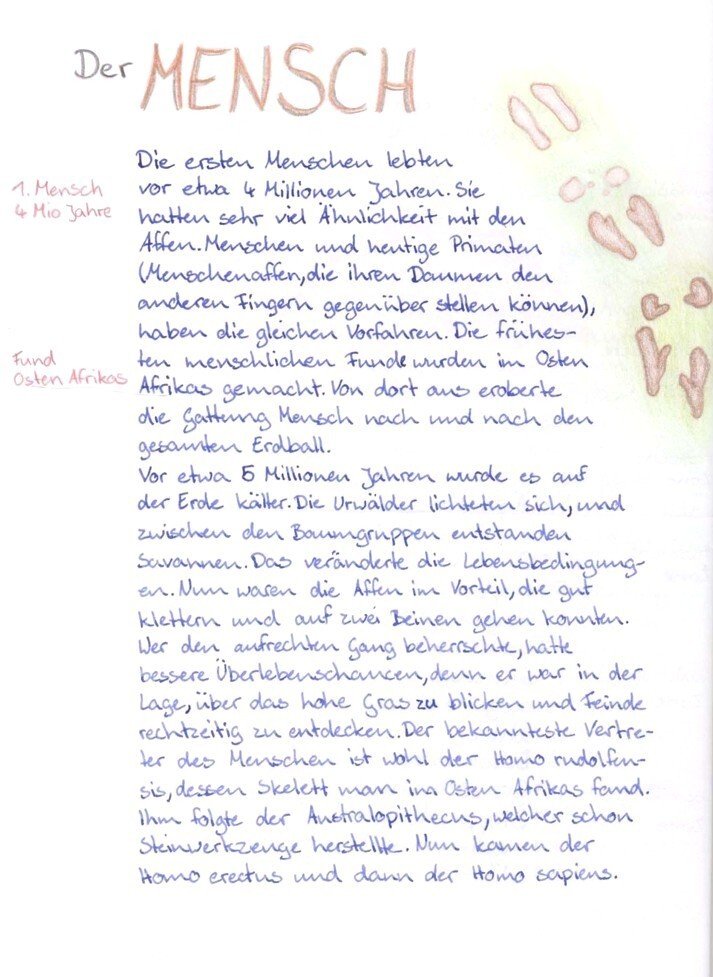 Der MENSCH
Die ersten Menschen lebten
1. Mensch
4 Mio Jahre
vor etwa 4 Millionen Jahren. Sie
hatten sehr viel Ähnlichkeit mit den
Affen. Menschen und heutige Primaten
(Menschenaffen, die ihren Daumen den
anderen Fingern gegenüber stellen können),
haben die gleichen Vorfahren. Die frühes-
Fund
Osten Afrikas
ten menschlichen Funde wurden im Osten
Afrikas gemacht. Von dort aus eroberte
die Gattung Mensch nach und nach den
gesamten Erdball.
Vor etwa 5 Millionen Jahren wurde es auf
der Erde kälter. Die Urwälder lichteten sich, und
zwischen den Baumgruppen entstanden
Savannen. Das veränderte die Lebensbedingung-
en. Nun waren die Affen im Vorteil, die gut
klettern und auf zwei Beinen gehen konnten.
Wer den aufrechten Gang beherrschte, hatte
bessere Überlebenschancen, denn er war in der
Lage, über das hohe Gras zu blicken und Feinde
rechtzeitig zu entdecken. Der bekannteste Vertre-
ter des Menschen ist wohl der Homo rudolfen-
sis, dessen Skelett man im Osten Afrikas fand.
Ihm folgte der Australopithecus, welcher schon
Steinwerkzeuge herstellte. Nun kamen der
Homo erectus und dann der Homo sapiens.